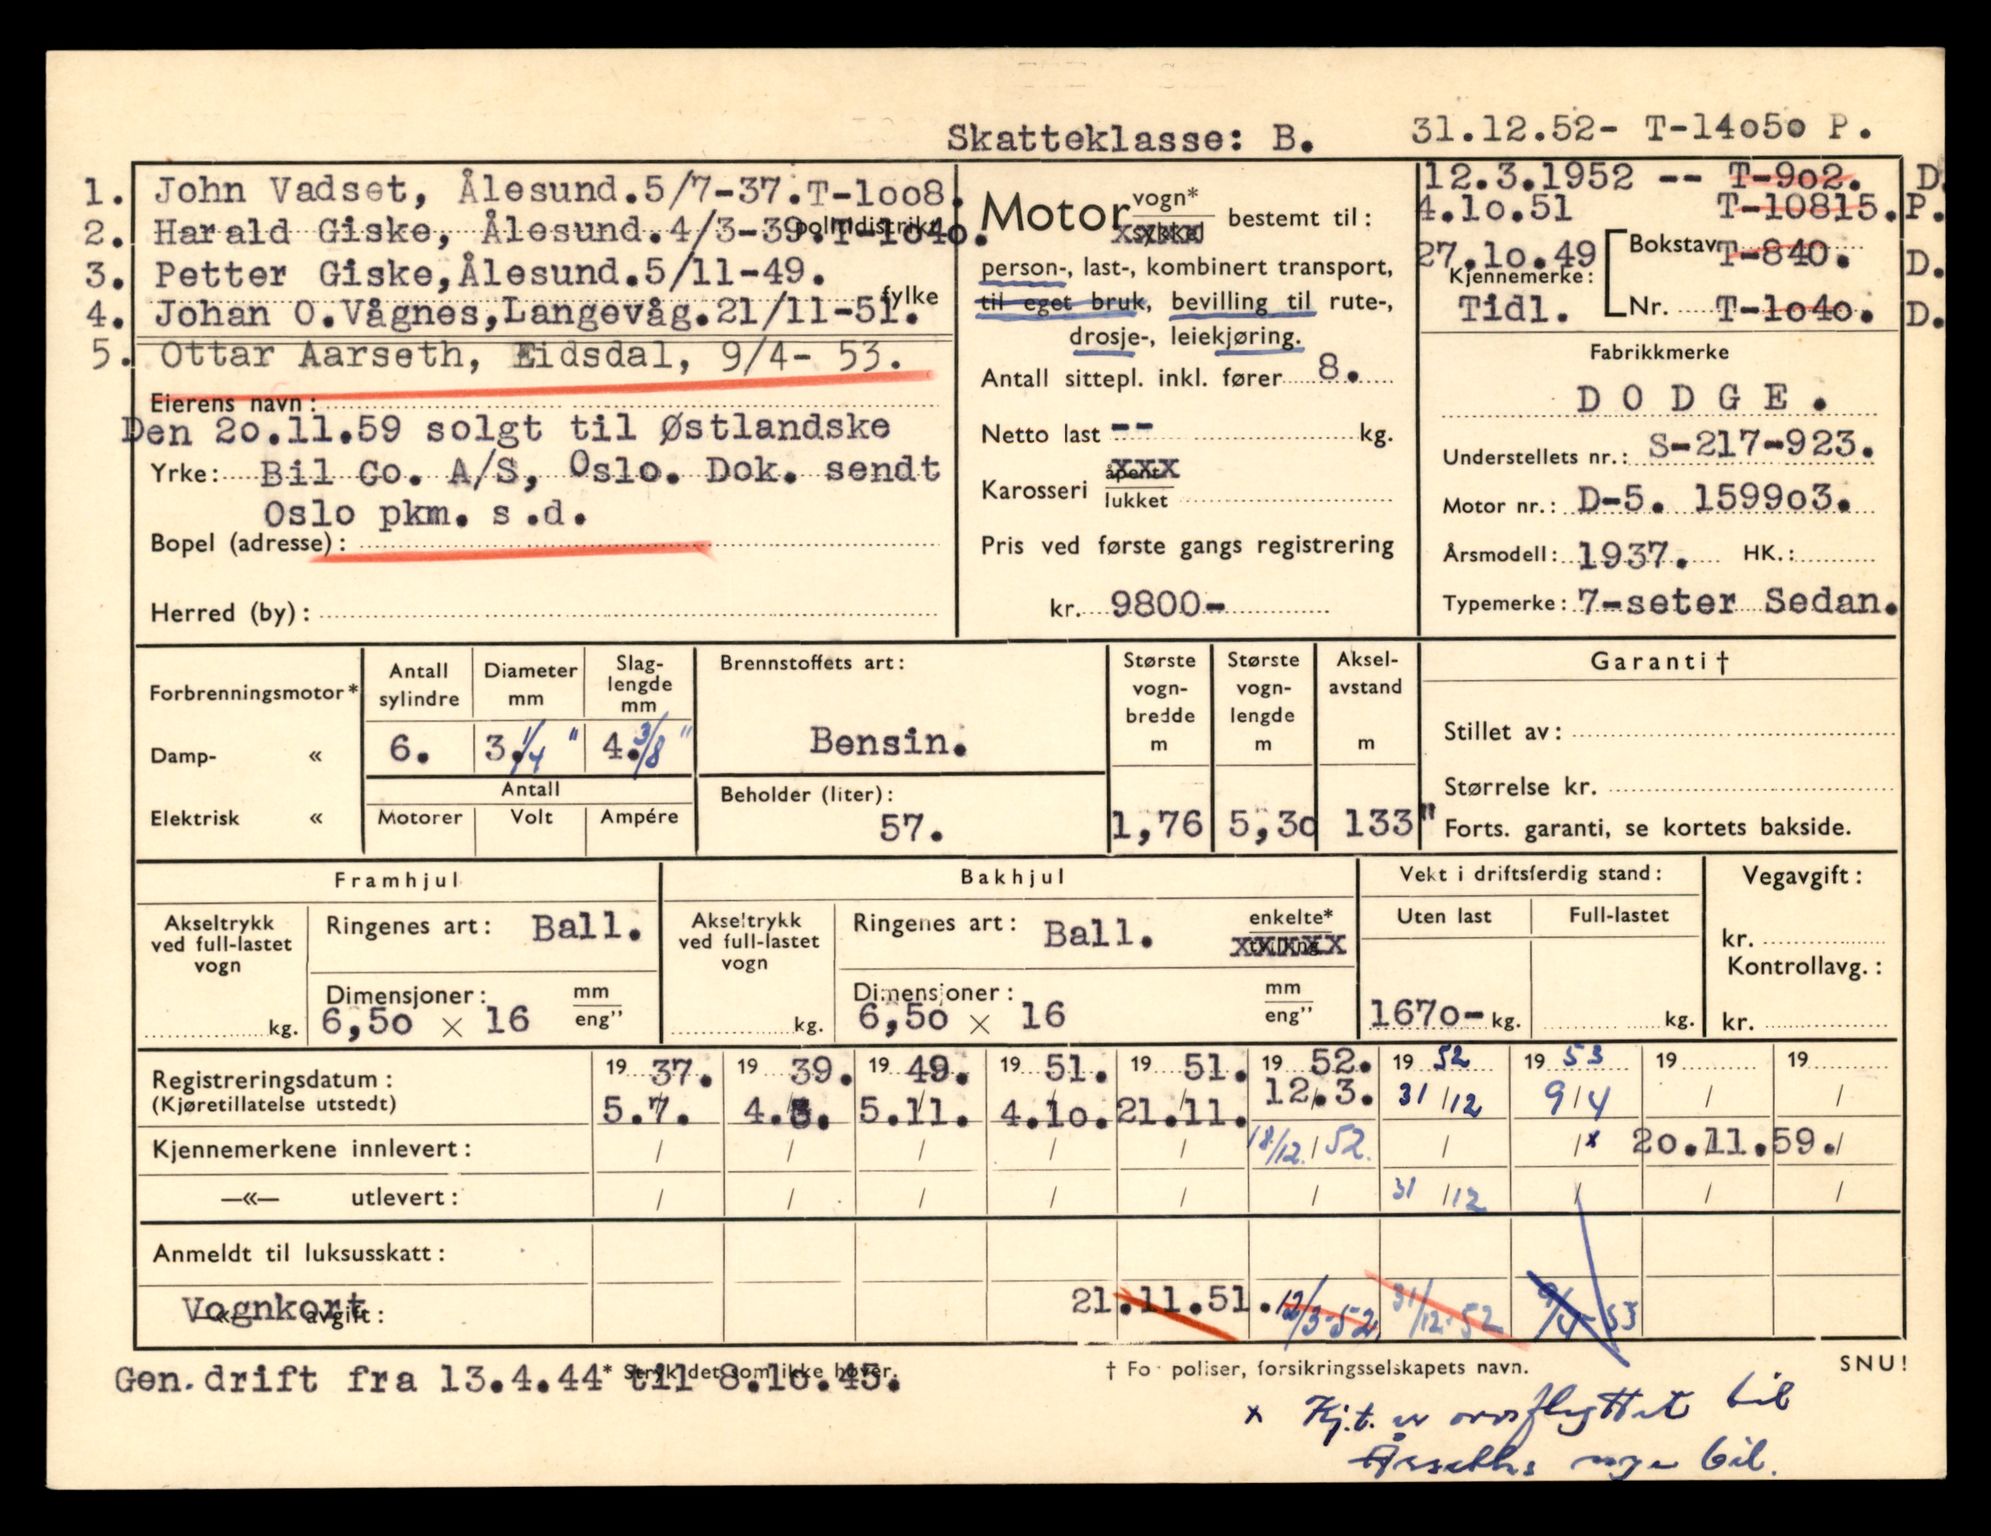 Skatteklasse: B. 31.12.52- T-14o5o P.
1. John Vadset, Ålesund.5/7-37.T-1oo8.
2. Harald Giske, Ålesund.4/3-39.T-1o4o. politidistrikt
3. Petter Giske,Ålesund.5/11-49.
4. Johan O.Vågnes,Langevåg.21/11-51. fylke
5. Ottar Aarseth, Eidsdal, 9/4- 53.
Eierens navn:
Den 2o.11.59 solgt til Østlandske
Yrke: Bil Co. A/S, Oslo. Dok. sendt
Oslo pkm. s .d.
Bopel (adresse):
Herred (by):
Motor vogn* sykkel bestemt til:
person-, last-, kombinert transport,
til eget bruk, bevilling til rute-,
drosje-, leiekjøring.
Antall sittepl. inkl. fører 8.
Netto last -- kg.
Karosseri åpent lukket
Pris ved første gangs registrering
kr. 9800-
12.3.1952 -- T-9o2. D.
4.1o.51 T-10815. P.
27.1o.49 Bokstav T-840. D.
Kjennemerke:
Tidl. Nr. T-1o4o. D.
Fabrikkmerke
D O D G E .
Understellets nr.: S-217-923.
Motor nr.: D-5. 1599o3.
Årsmodell: 1937. HK.:
Typemerke: 7-seter Sedan.
Forbrenningsmotor*
Damp- «
Elektrisk «
Antall sylindre
6.
Diameter mm
3.1/4 "
Slag-lengde mm
4.3/8 "
Antall
Motorer Volt Ampére
Brennstoffets art:
Bensin.
Beholder (liter):
57.
Største vogn-bredde m
1,76
Største vogn-lengde m
5,3o
Aksel-avstand m
133"
Garanti †
Stillet av:
Størrelse kr.
Forts. garanti, se kortets bakside.
Framhjul
Akseltrykk ved full-lastet vogn
kg.
Ringenes art: Ball.
Dimensjoner: mm eng"
6,5o × 16
Bakhjul
Akseltrykk ved full-lastet vogn
kg.
Ringenes art: Ball. enkelte* tvilling
Dimensjoner: mm eng"
6,5o × 16
Vekt i driftsferdig stand:
Uten last Full-lastet
167o- kg. kg.
Vegavgift:
kr.
Kontrollavg.:
kr.
19 37. 19 39. 19 49. 19 51. 19 51. 19 52. 19 52 19 53 19 19
Registreringsdatum:
(Kjøretillatelse utstedt) 5.7. 4.3. 5.11. 4.1o. 21.11. 12.3. 31/12 9/4 / /
Kjennemerkene innlevert: / / / / / 18/12. 52. / /x 2o.11.59. /
—«— utlevert: / / / / / / 31/12 / / /
Anmeldt til luksusskatt:
Vognkort —«— avgift: 21.11.51. 12/3-52 31/12-52 9/4-53
Gen. drift fra 13.4.44 til 8.1o.45.
* Stryk det som ikke høver.
† For poliser, forsikringsselskapets navn.
SNU!
x Kj.t. er overflyttet til
Årseths nye bil.